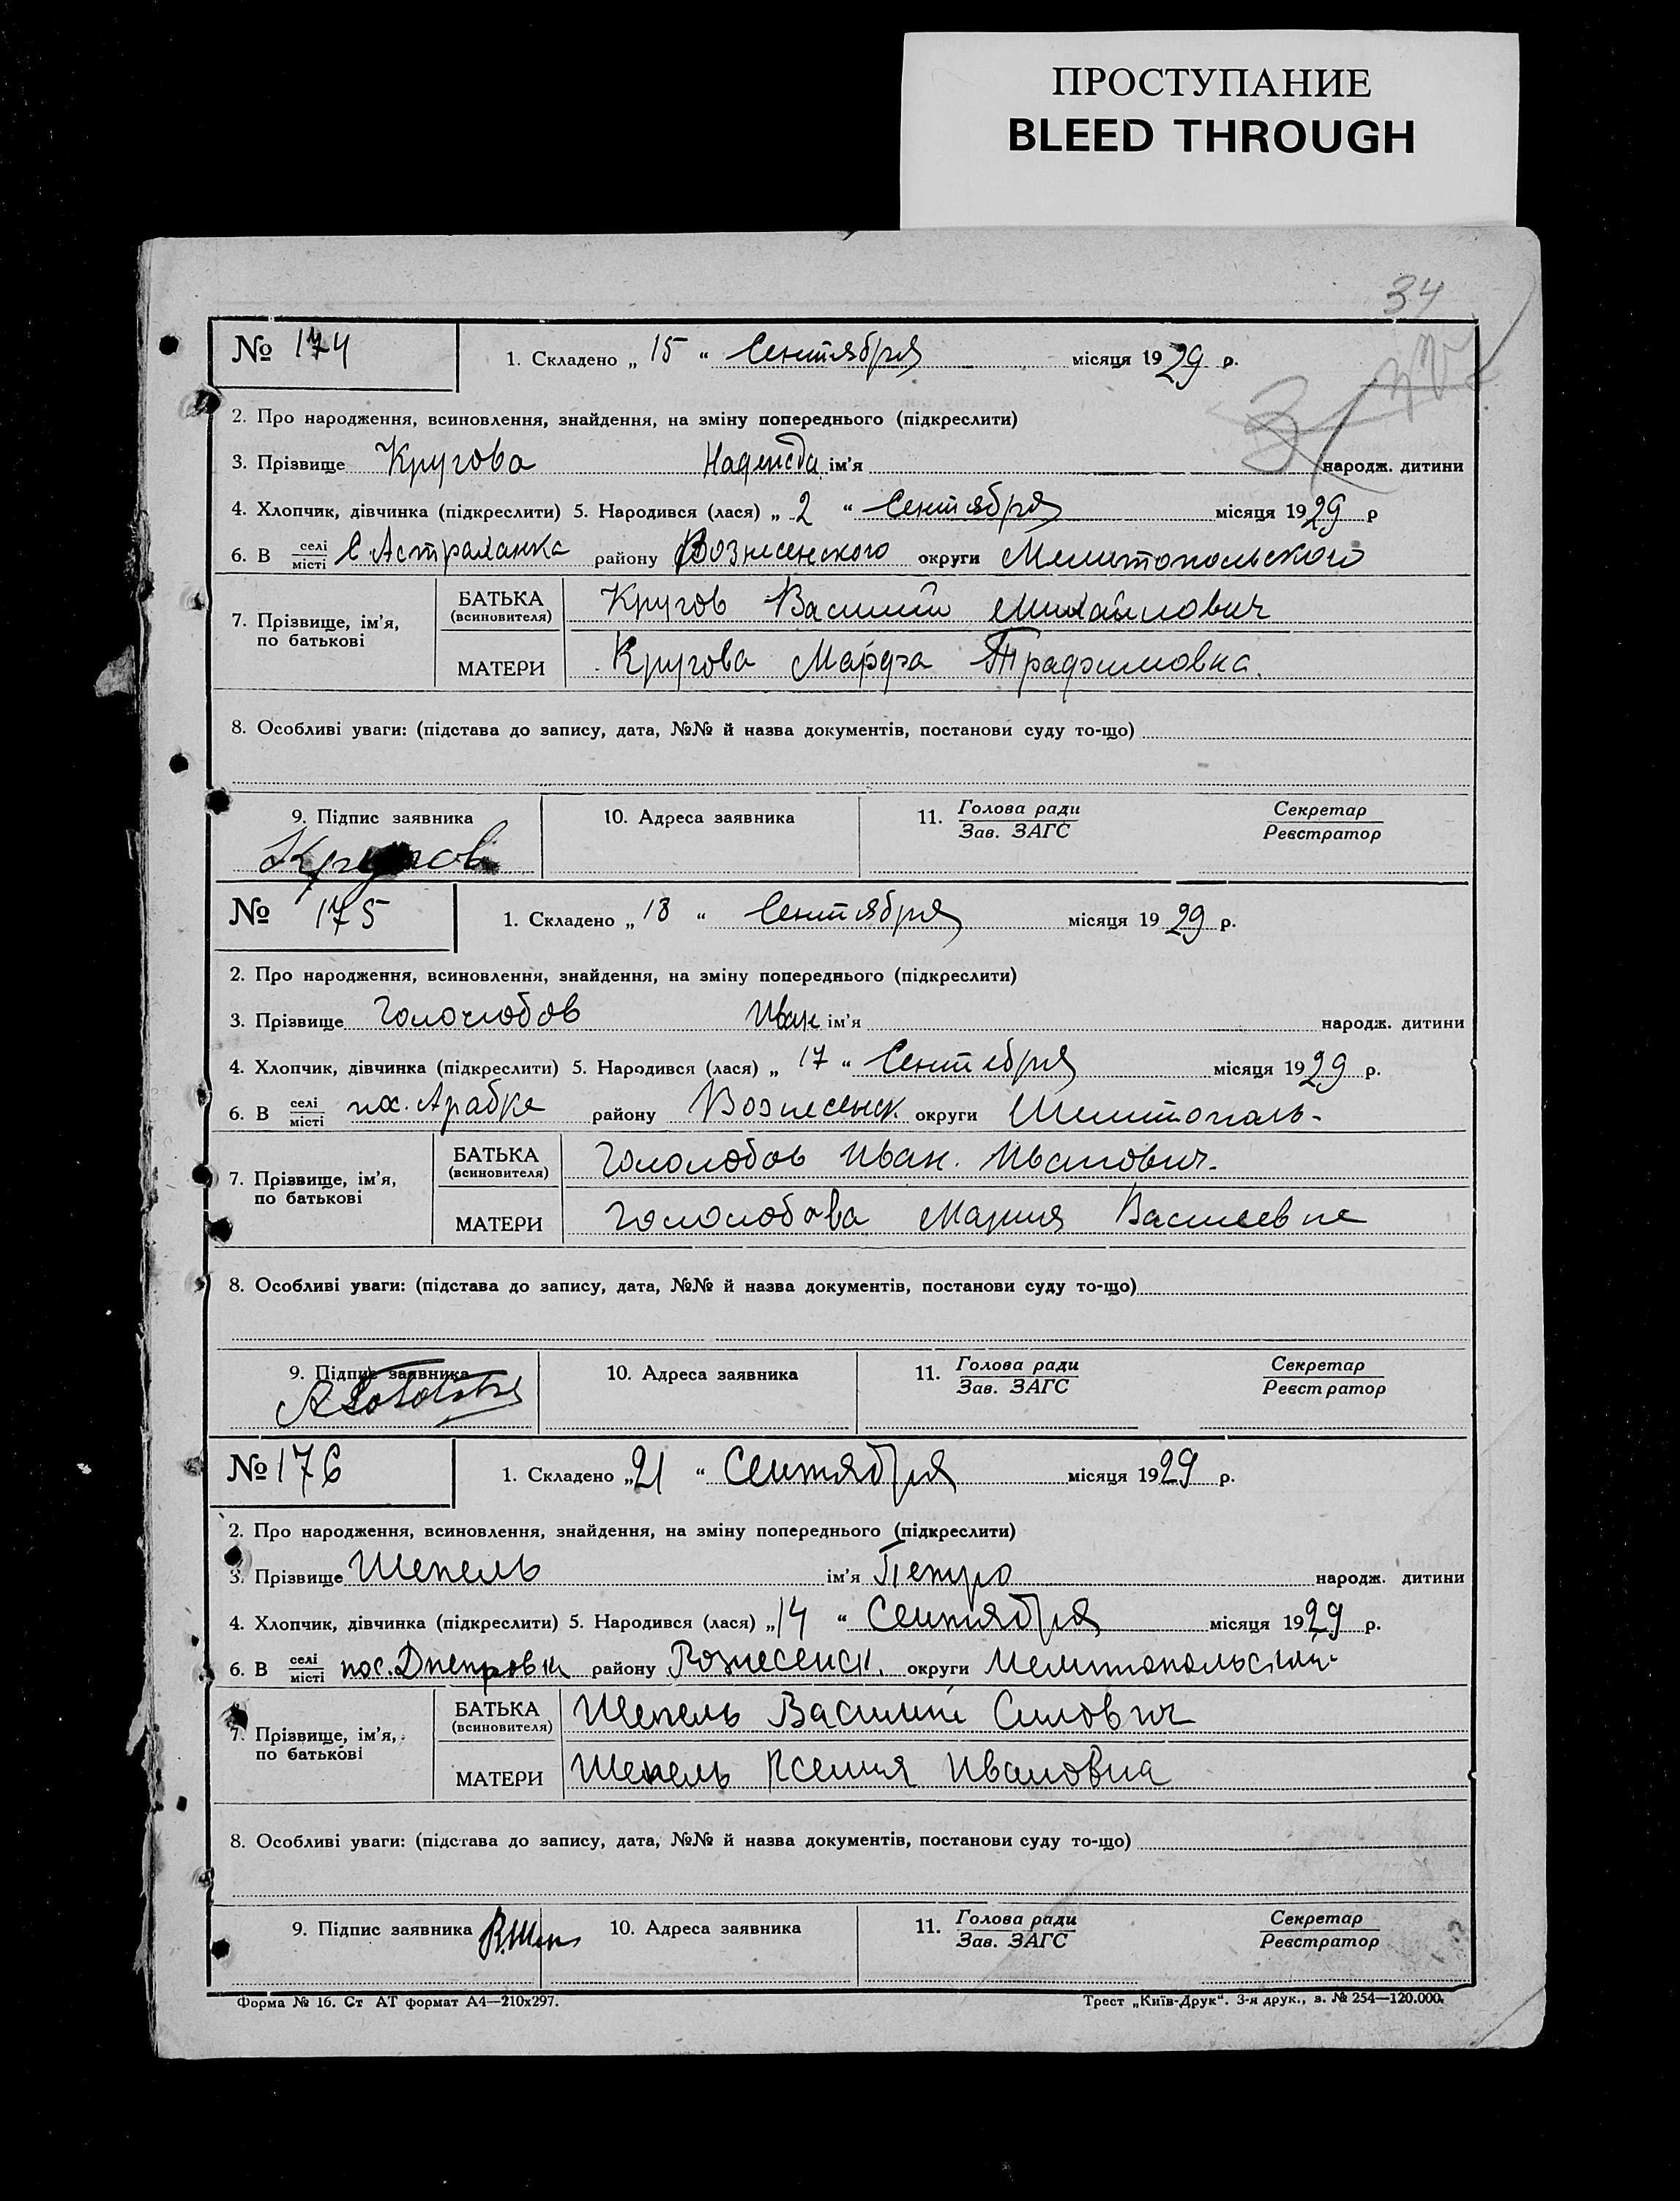 ПРОСТУПАНИЕ
BLEED THROUGH
34
№ 174 1. Складено „ 15 “ Сентября місяця 1929 р.
2. Про народження, всиновлення, знайдення, на зміну попереднього (підкреслити)
3. Прізвище Кругова Надежда ім'я народж. дитини
4. Хлопчик, дівчинка (підкреслити) 5. Народився (лася) „ 2 “ Сентября місяця 1929 р
6. В селі місті С. Астраханка району Вознесенского округи Мелитопольского
7. Прізвище, ім'я, по батькові
БАТЬКА (всиновителя) Кругов Василий Михайлович
МАТЕРИ Кругова Марфа Трафимовна.
8. Особливі уваги: (підстава до запису, дата, №№ й назва документів, постанови суду то-що)
9. Підпис заявника 10. Адреса заявника 11. Голова ради Зав. ЗАГС Секретар Реєстратор
Кругов
№ 175 1. Складено „ 18 “ Сентября місяця 1929 р.
2. Про народження, всиновлення, знайдення, на зміну попереднього (підкреслити)
3. Прізвище Гололобов Иван ім'я народж. дитини
4. Хлопчик, дівчинка (підкреслити) 5. Народився (лася) „ 17 “ Сентебря місяця 1929 р.
6. В селі місті пос. Арабка району Вознесенск. округи Мелитополь-
7. Прізвище, ім'я, по батькові
БАТЬКА (всиновителя) Гололобов Иван. Иванович.
МАТЕРИ Гололобова Мария Василевне
8. Особливі уваги: (підстава до запису, дата, №№ й назва документів, постанови суду то-що)
9. Підпис заявника 10. Адреса заявника 11. Голова ради Зав. ЗАГС Секретар Реєстратор
№ 176 1. Складено „ 21 “ Сентября місяця 1929 р.
2. Про народження, всиновлення, знайдення, на зміну попереднього (підкреслити)
3. Прізвище Шепель ім'я Петро народж. дитини
4. Хлопчик, дівчинка (підкреслити) 5. Народився (лася) „ 14 “ Сентября місяця 1929 р.
6. В селі місті пос. Днепровка району Вознесенск. округи Мелитопольской
7. Прізвище, ім'я, по батькові
БАТЬКА (всиновителя) Шепель Василий Силович
МАТЕРИ Шепель Ксения Ивановна
8. Особливі уваги: (підстава до запису, дата, №№ й назва документів, постанови суду то-що)
9. Підпис заявника В.Шеп 10. Адреса заявника 11. Голова ради Зав. ЗАГС Секретар Реєстратор
Форма № 16. Ст АТ формат А4—210х297. Трест „Київ-Друк“. 3-я друк., з. № 254—120.000.